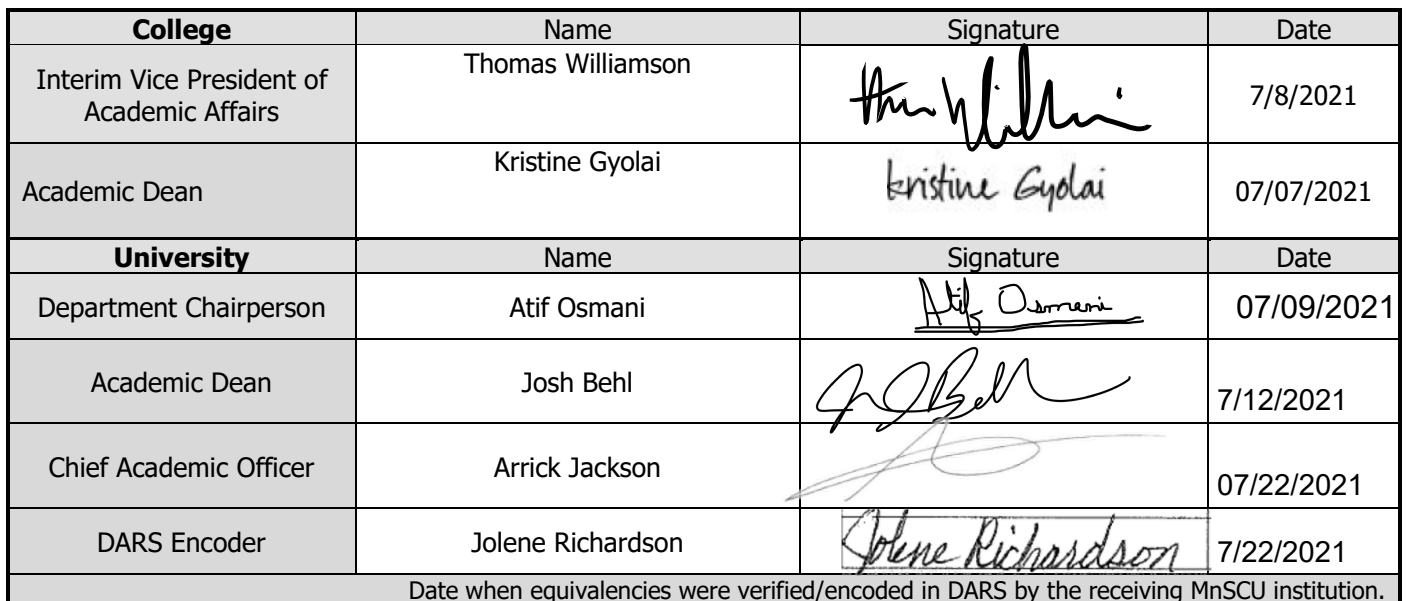 College Name Signature Date
Interim Vice President of Thomas Williamson 7/8/2021
Academic Affairs
Academic Dean Kristine Gyolai Kristine Gyolai 07/07/2021
University Name Signature Date
Department Chairperson Atif Osmani Atif Osmani 07/09/2021
Academic Dean Josh Behl 7/12/2021
Chief Academic Officer Arrick Jackson 07/22/2021
DARS Encoder Jolene Richardson Jolene Richardson 7/22/2021
Date when equivalencies were verified/encoded in DARS by the receiving MnSCU institution.